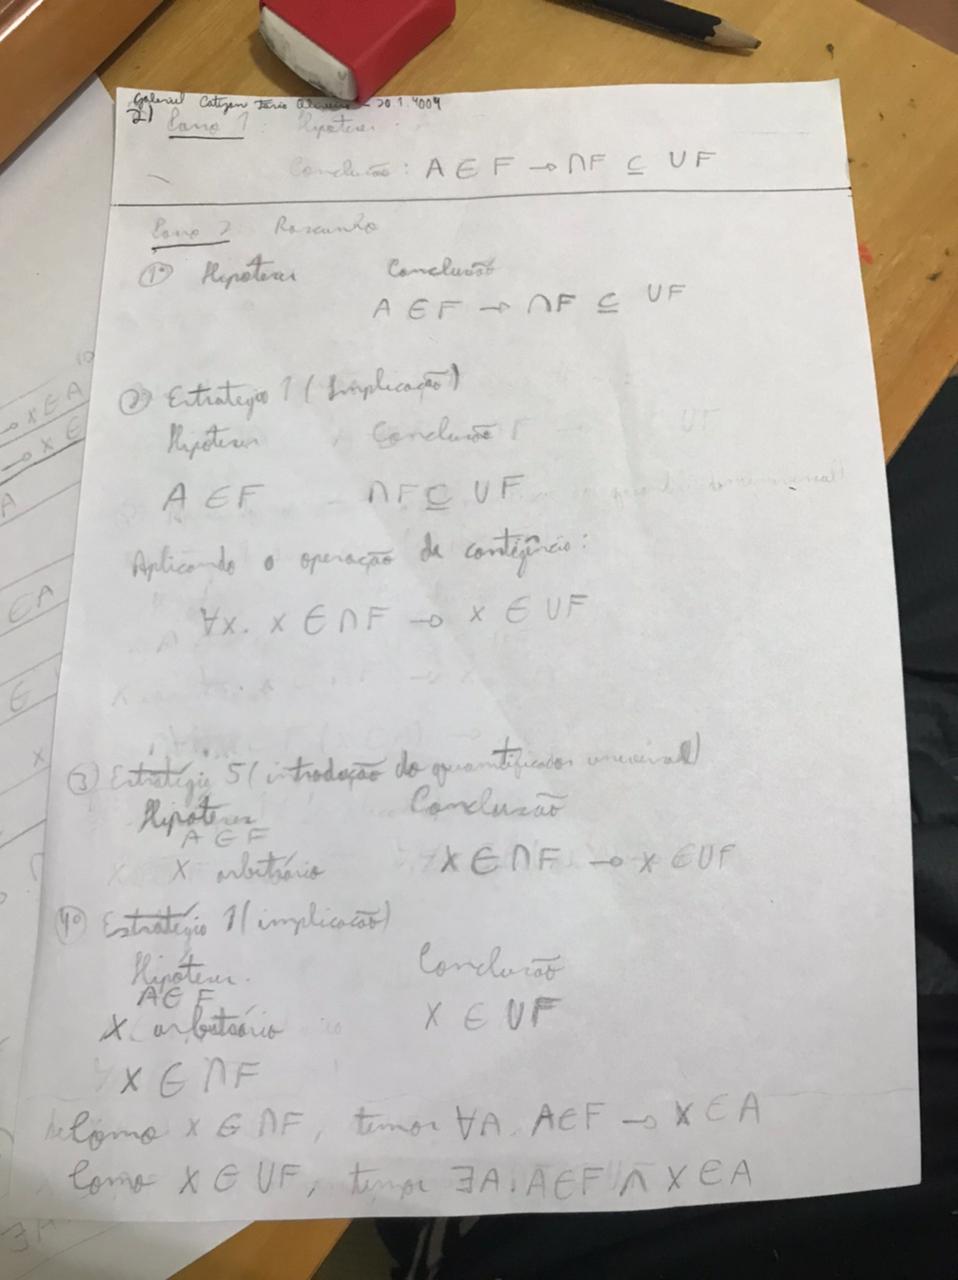 Gabriel Catizani Faria Oliveira - 20.1.4004
2) Passo 1: Hipóteses:
Conclusão: A ∈ F → ∩F ⊆ ∪F
Passo 2 Rascunho
1º Hipóteses Conclusão
A ∈ F → ∩F ⊆ ∪F
2º Estratégia 1 (Implicação)
Hipóteses Conclusão
A ∈ F ∩F ⊆ ∪F
Aplicando a operação da contigência:
∀x. x ∈ ∩F → x ∈ ∪F
3) Estratégia 5 (introdução do quantificador universal)
Hipóteses Conclusão
A ∈ F
X arbitrário X ∈ ∩F → x ∈ ∪F
4º Estratégia 1 (implicação)
Hipóteses. Conclusão
A ∈ F
X arbitrário X ∈ ∪F
X ∈ ∩F
Como x ∈ ∩F, temos ∀A. A∈F → X ∈ A
Como X ∈ ∪F, temos ∃A. A∈F ∧ X ∈ A